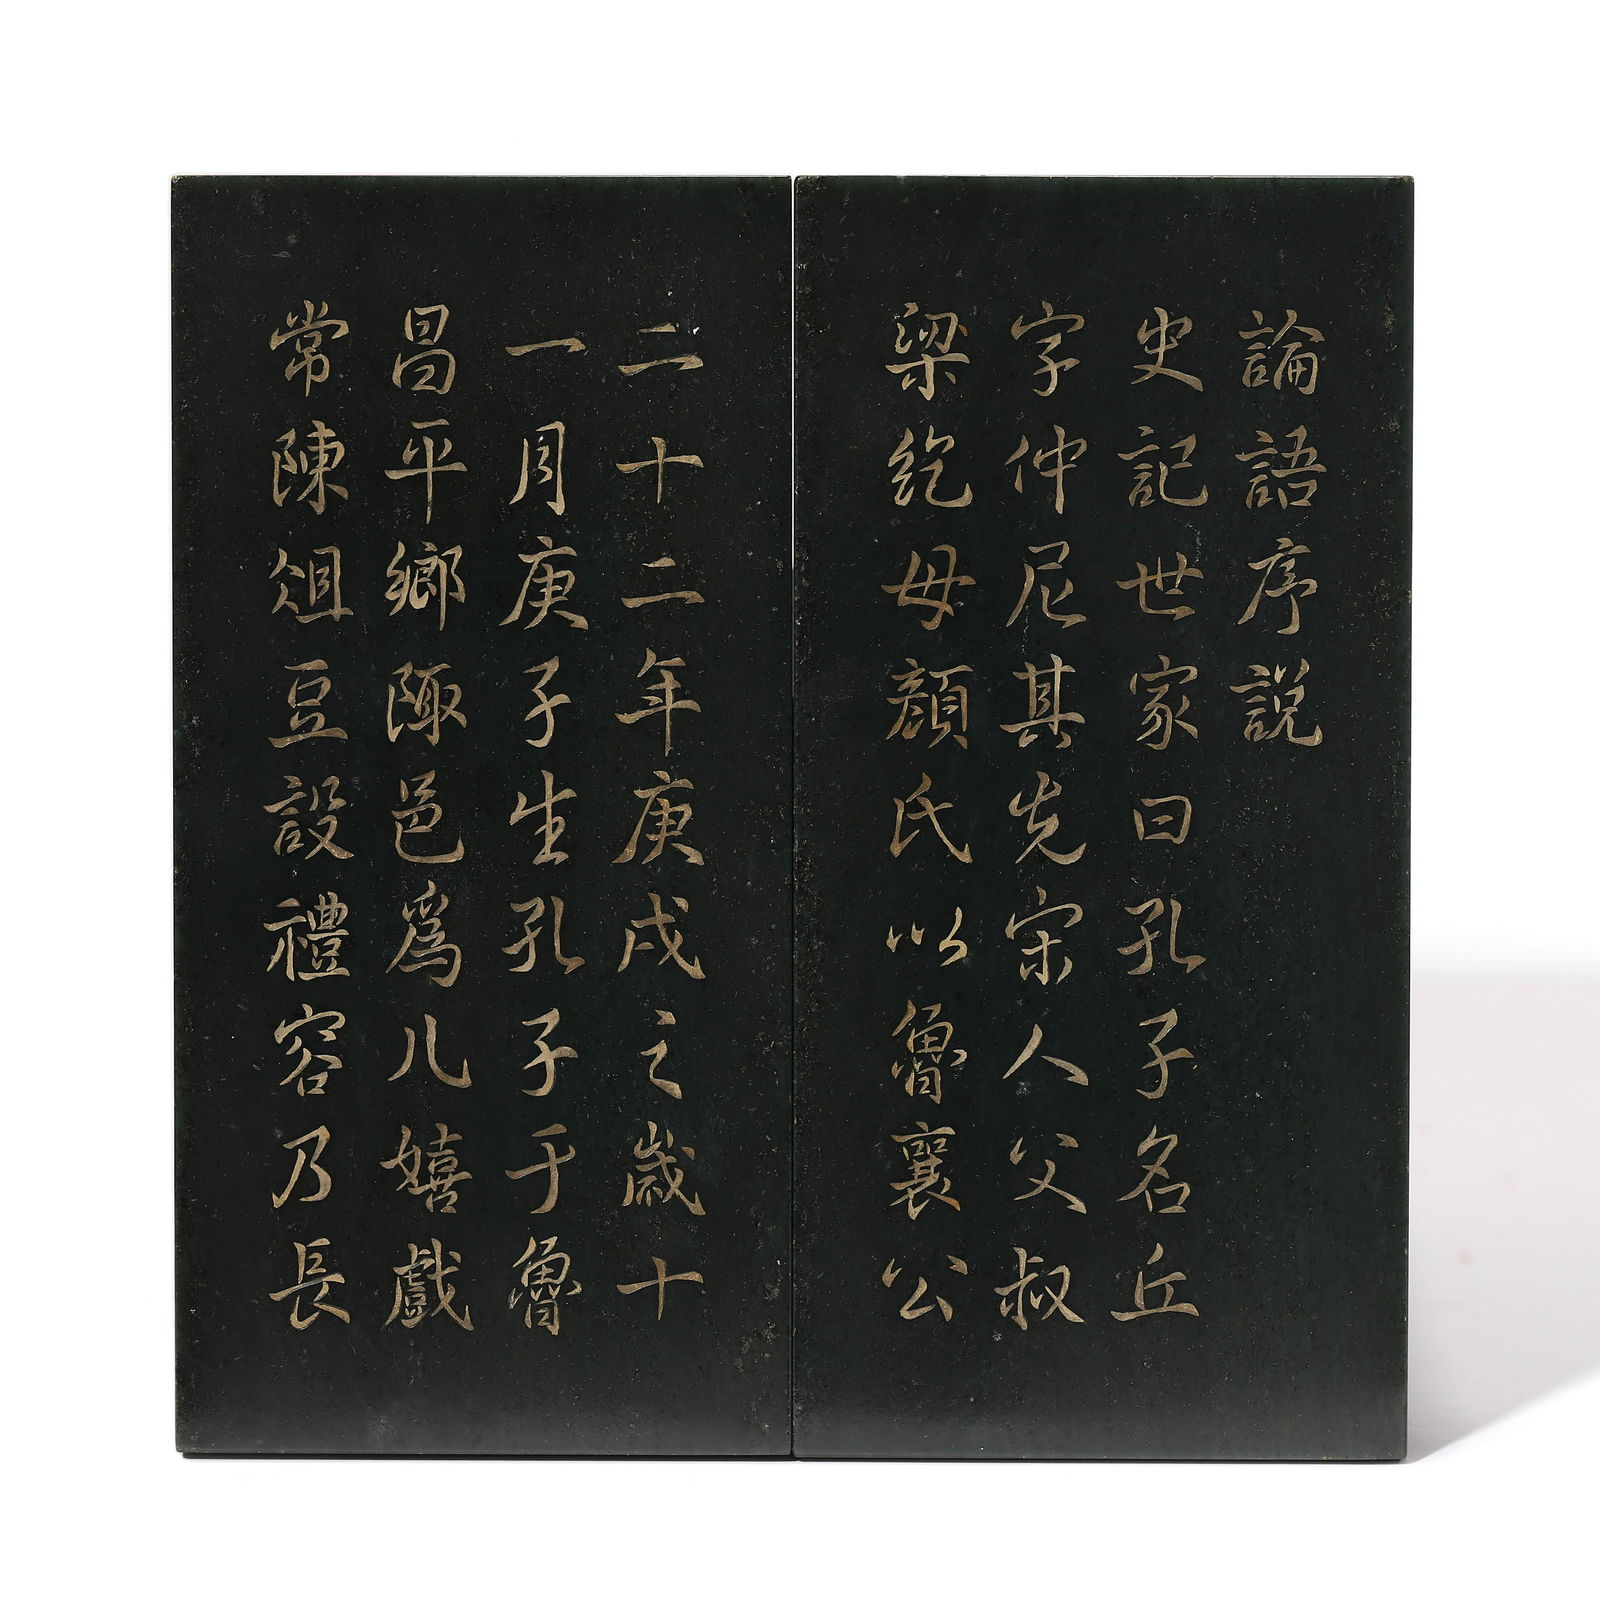 論語序說
史記世家曰孔子名丘
字仲尼其先宋人父叔
梁紇母顏氏以魯襄公
二十二年庚戌之歲十
一月庚子生孔子于魯
昌平鄉陬邑爲儿嬉戲
常陳俎豆設禮容乃長